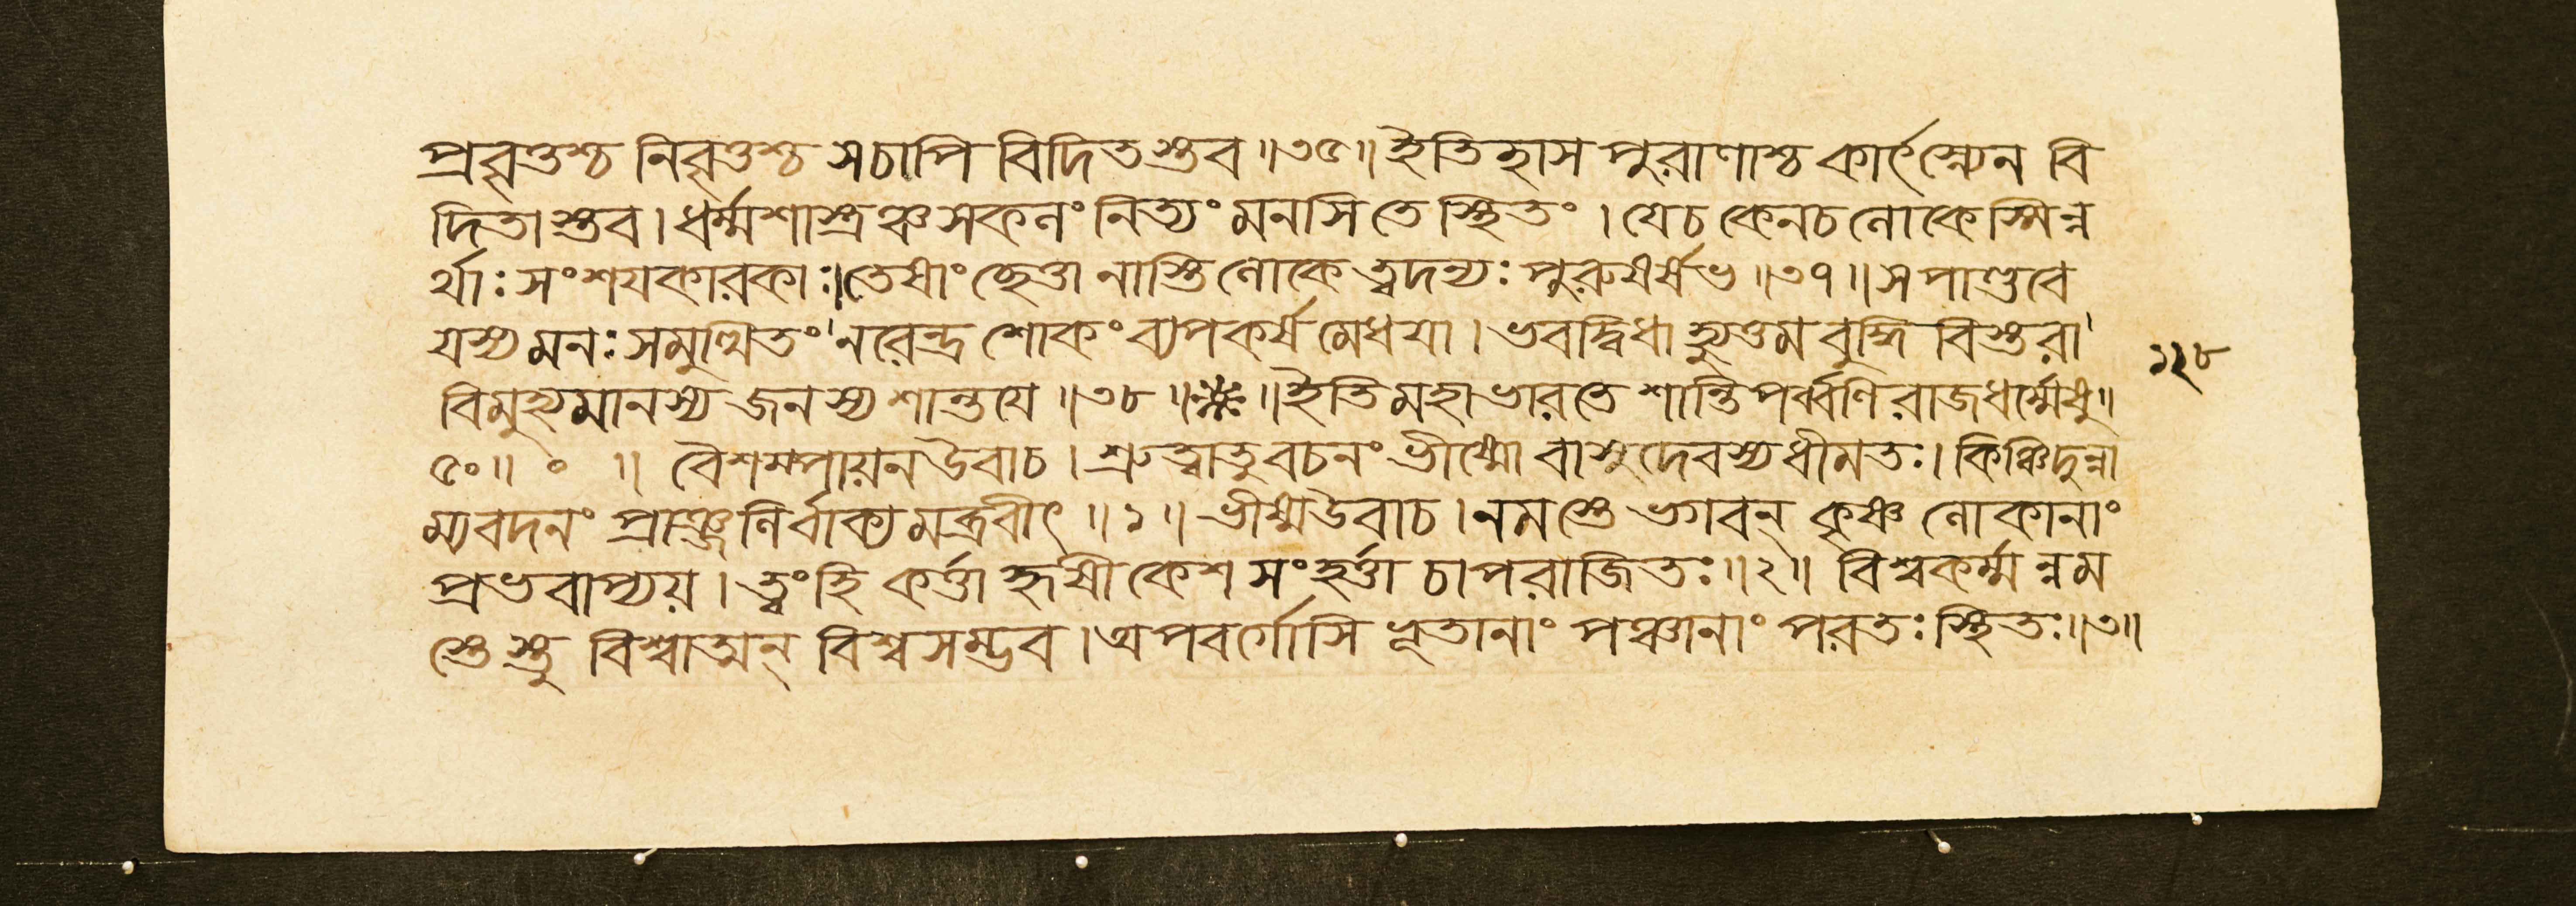 প্রবৃত্তশ্চ নিবৃত্তশ্চ সচাপি বিদিতস্তব॥৩৫॥ইতিহাস পুরাণাশ্চ কার্ৎস্ন্যেন বি
দিতাস্তব। ধর্ম্মশাস্ত্রঞ্চ সকলং নিত্যং মনসি তে স্থিতং । যেচ কেনচ লোকেস্মিন্ন
র্থাঃ সংশয়কারকাঃ।তেষাং ছেত্তা নাস্তি লোকে ত্বদন্যঃ পুরুষর্ষভ॥৩৭॥ স পাণ্ডবে
যস্য মনঃ সমুত্থিতং নরেন্দ্র শোকং ব্যপকর্ষ মেধয়া । ভবদ্বিধা হ্যুত্তম বুদ্ধি বিস্তরা
বিমুহ্যমানস্য জনস্য শান্তয়ে ॥৩৮॥ ॥ইতি মহাভারতে শান্তিপর্ব্বণি রাজধর্ম্মেষু॥
৫০॥ ০ ॥ বৈশম্পায়ন উবাচ । শ্রুত্বাতু বচনং ভীষ্মো বাসুদেবস্য ধীমতঃ। কিঞ্চিদুন্না
ম্যবদনং প্রাঞ্জলির্বাক্যমব্রবীৎ ॥১॥ ভীষ্মউবাচ ।নমস্তে ভগবন্ কৃষ্ণ লোকানাং
প্রভবাপ্যয় । ত্বংহি কর্ত্তা হৃষীকেশ সংহর্ত্তা চাপরাজিতঃ॥২॥ বিশ্বকর্ম্মন্নম
স্তেস্তু বিশ্বাত্মন্ বিশ্বসম্ভব ।অপবর্গোসি ভূতানাং পঞ্চানাং পরতঃ স্থিতঃ॥৩॥
১২৮